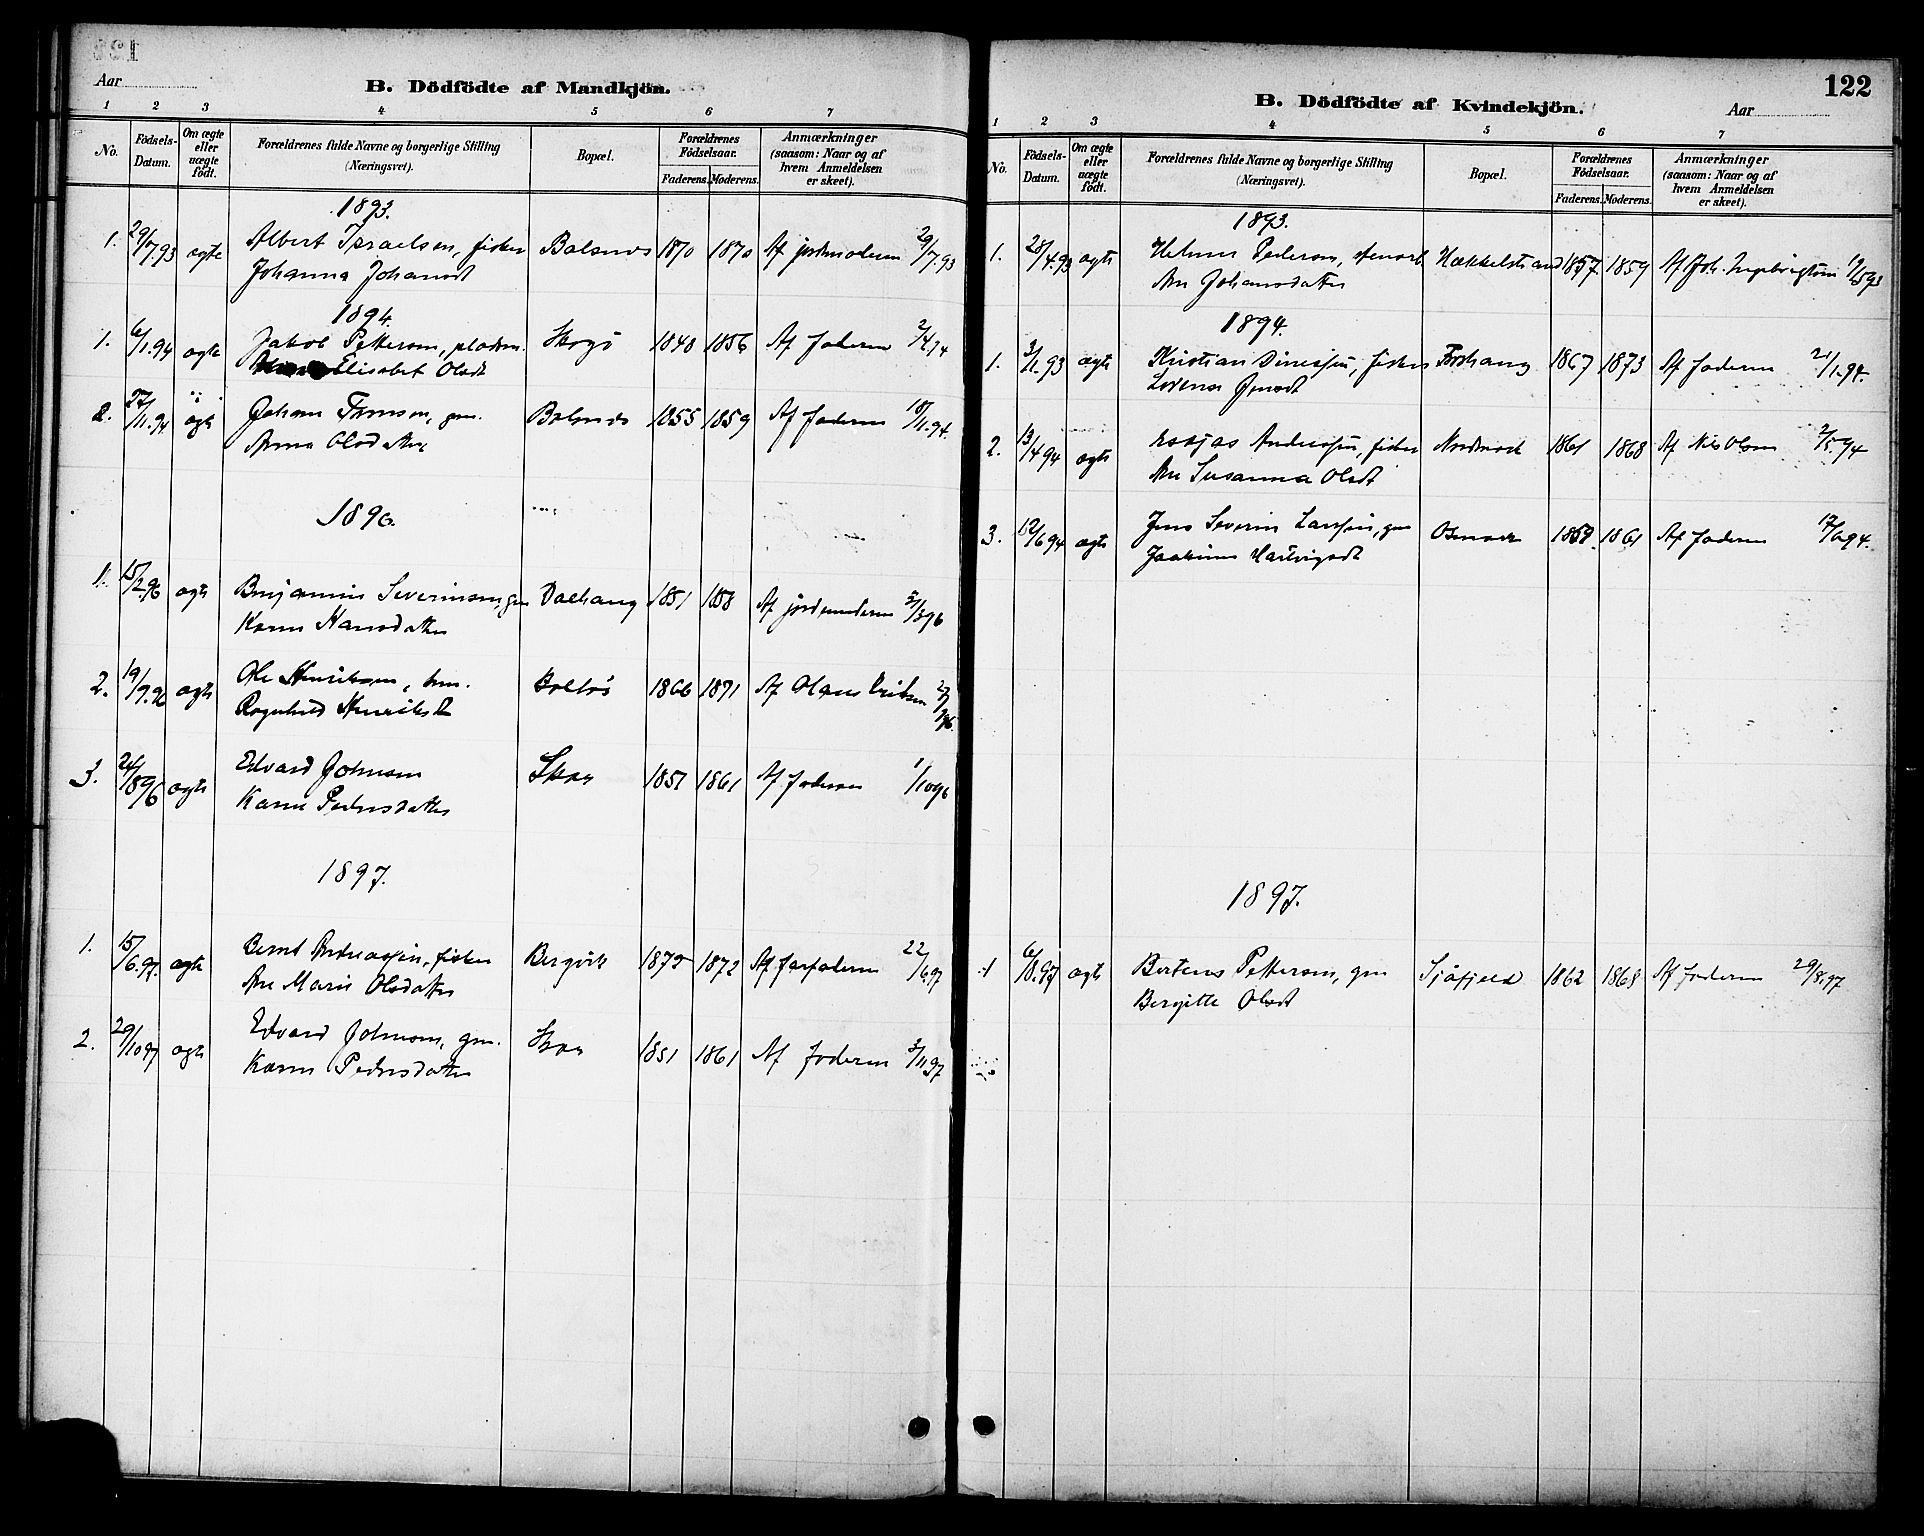 Aar
B. Dödfödte af Mandkjön.
1 2 3 4 5 6 7
No. Födsels-Datum. Om ægte eller uægte födt. Forældrenes fulde Navne og borgerlige Stilling (Næringsvet). Bopæl. Forældrenes Födselsaar. Faderens. Moderens. Anmærkninger (saasom: Naar og af hvem Anmeldelsen er skeet).
1893.
1. 29/7.93 ægte Albert Israelsen, fisker Balsnes 1870 1870 Af jordmoderen 29/7.93
Johanna Johansdt
1894.
1. 6/1.94 ægte Jakob Pettersen, pladsm. Skogö 1848 1856 Af faderen
Elisabet Olsdt
2. 27/11.94 ægte Johan Tomsen, gm. Balsnes 1855 1859 Af faderen 18/11.94.
Anna Olsdatter
1896.
1. 15/2.96 ægte Benjamin Severinsen, gm Dalhaug 1851 1858 Af jordemoderen 5/3 96
Karen Hansdatter
2. 19/7.96 ægte Ole Henriksen, 1866 1871 Af Olaus Eriksen
Ragnhild Henriksdt
3. 24/8 96 ægte Edvard Johnsen Skog 1851 1861 Af faderen 1/10 96
Karen Pedersdatter
1897.
1. 15/6.97. ægte Bernt Andreassen, fisker Bergvik 1872 1872 Af farfaderen 22/6.97
Ane Marie Olsdatter
2. 29/10 97 ægte Edvard Johnsen, gm. Skog 1851 1861 Af faderen 3/11.97
Karen Pedersdatter
122
B. Dödfödte af Kvindekjön.
Aar
1 2 3 4 5 6 7
No. Födsels-Datum. Om ægte eller uægte födt. Forældrenes fulde Navne og borgerlige Stilling (Næringsvet). Bopæl. Forældrenes Födselsaar. Faderens. Moderens. Anmærkninger (saasom: Naar og af hvem Anmeldelsen er skeet).
1893.
1. 28/4.93 ægte Helmer Pedersen, Hækkelstrand 1857 1859 Af Joh. Ingebrigtsen 19/5 93
Ane Johansdatter
1894.
1. 3/11.93 ægte Kristian Dinessen, fisker Forshaug 1867 1873 Af faderen 21/1.94.
Lovense
2. 13/4 94 ægte Essajas Andreassen, fisker 1861 1868 Af Nils Olsen 2/5.94
Ane Susanna Olsdt
3. 12/6 94 ægte Jens Severin Larssen, gm 1859. 1861 Af faderen 17/6.94.
Joakime Hartvigsdt
1897.
1 6/8.97 ægte Berteus Pettersen, gm Sjåfjeld 1862 1868 Af faderen 29/8.97
Bergitte Olsdt